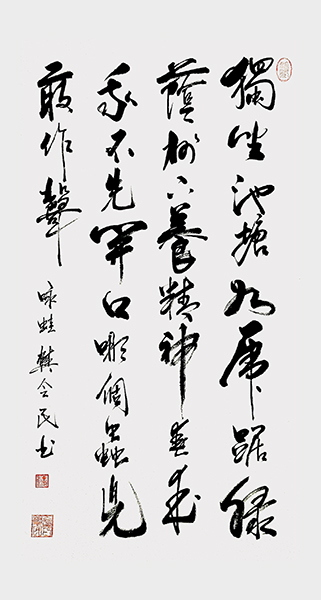 獨坐池塘如虎踞綠
蔭樹下養精神春來
我不先開口哪個蟲兒
敢作聲
咏蛙 樊令民书